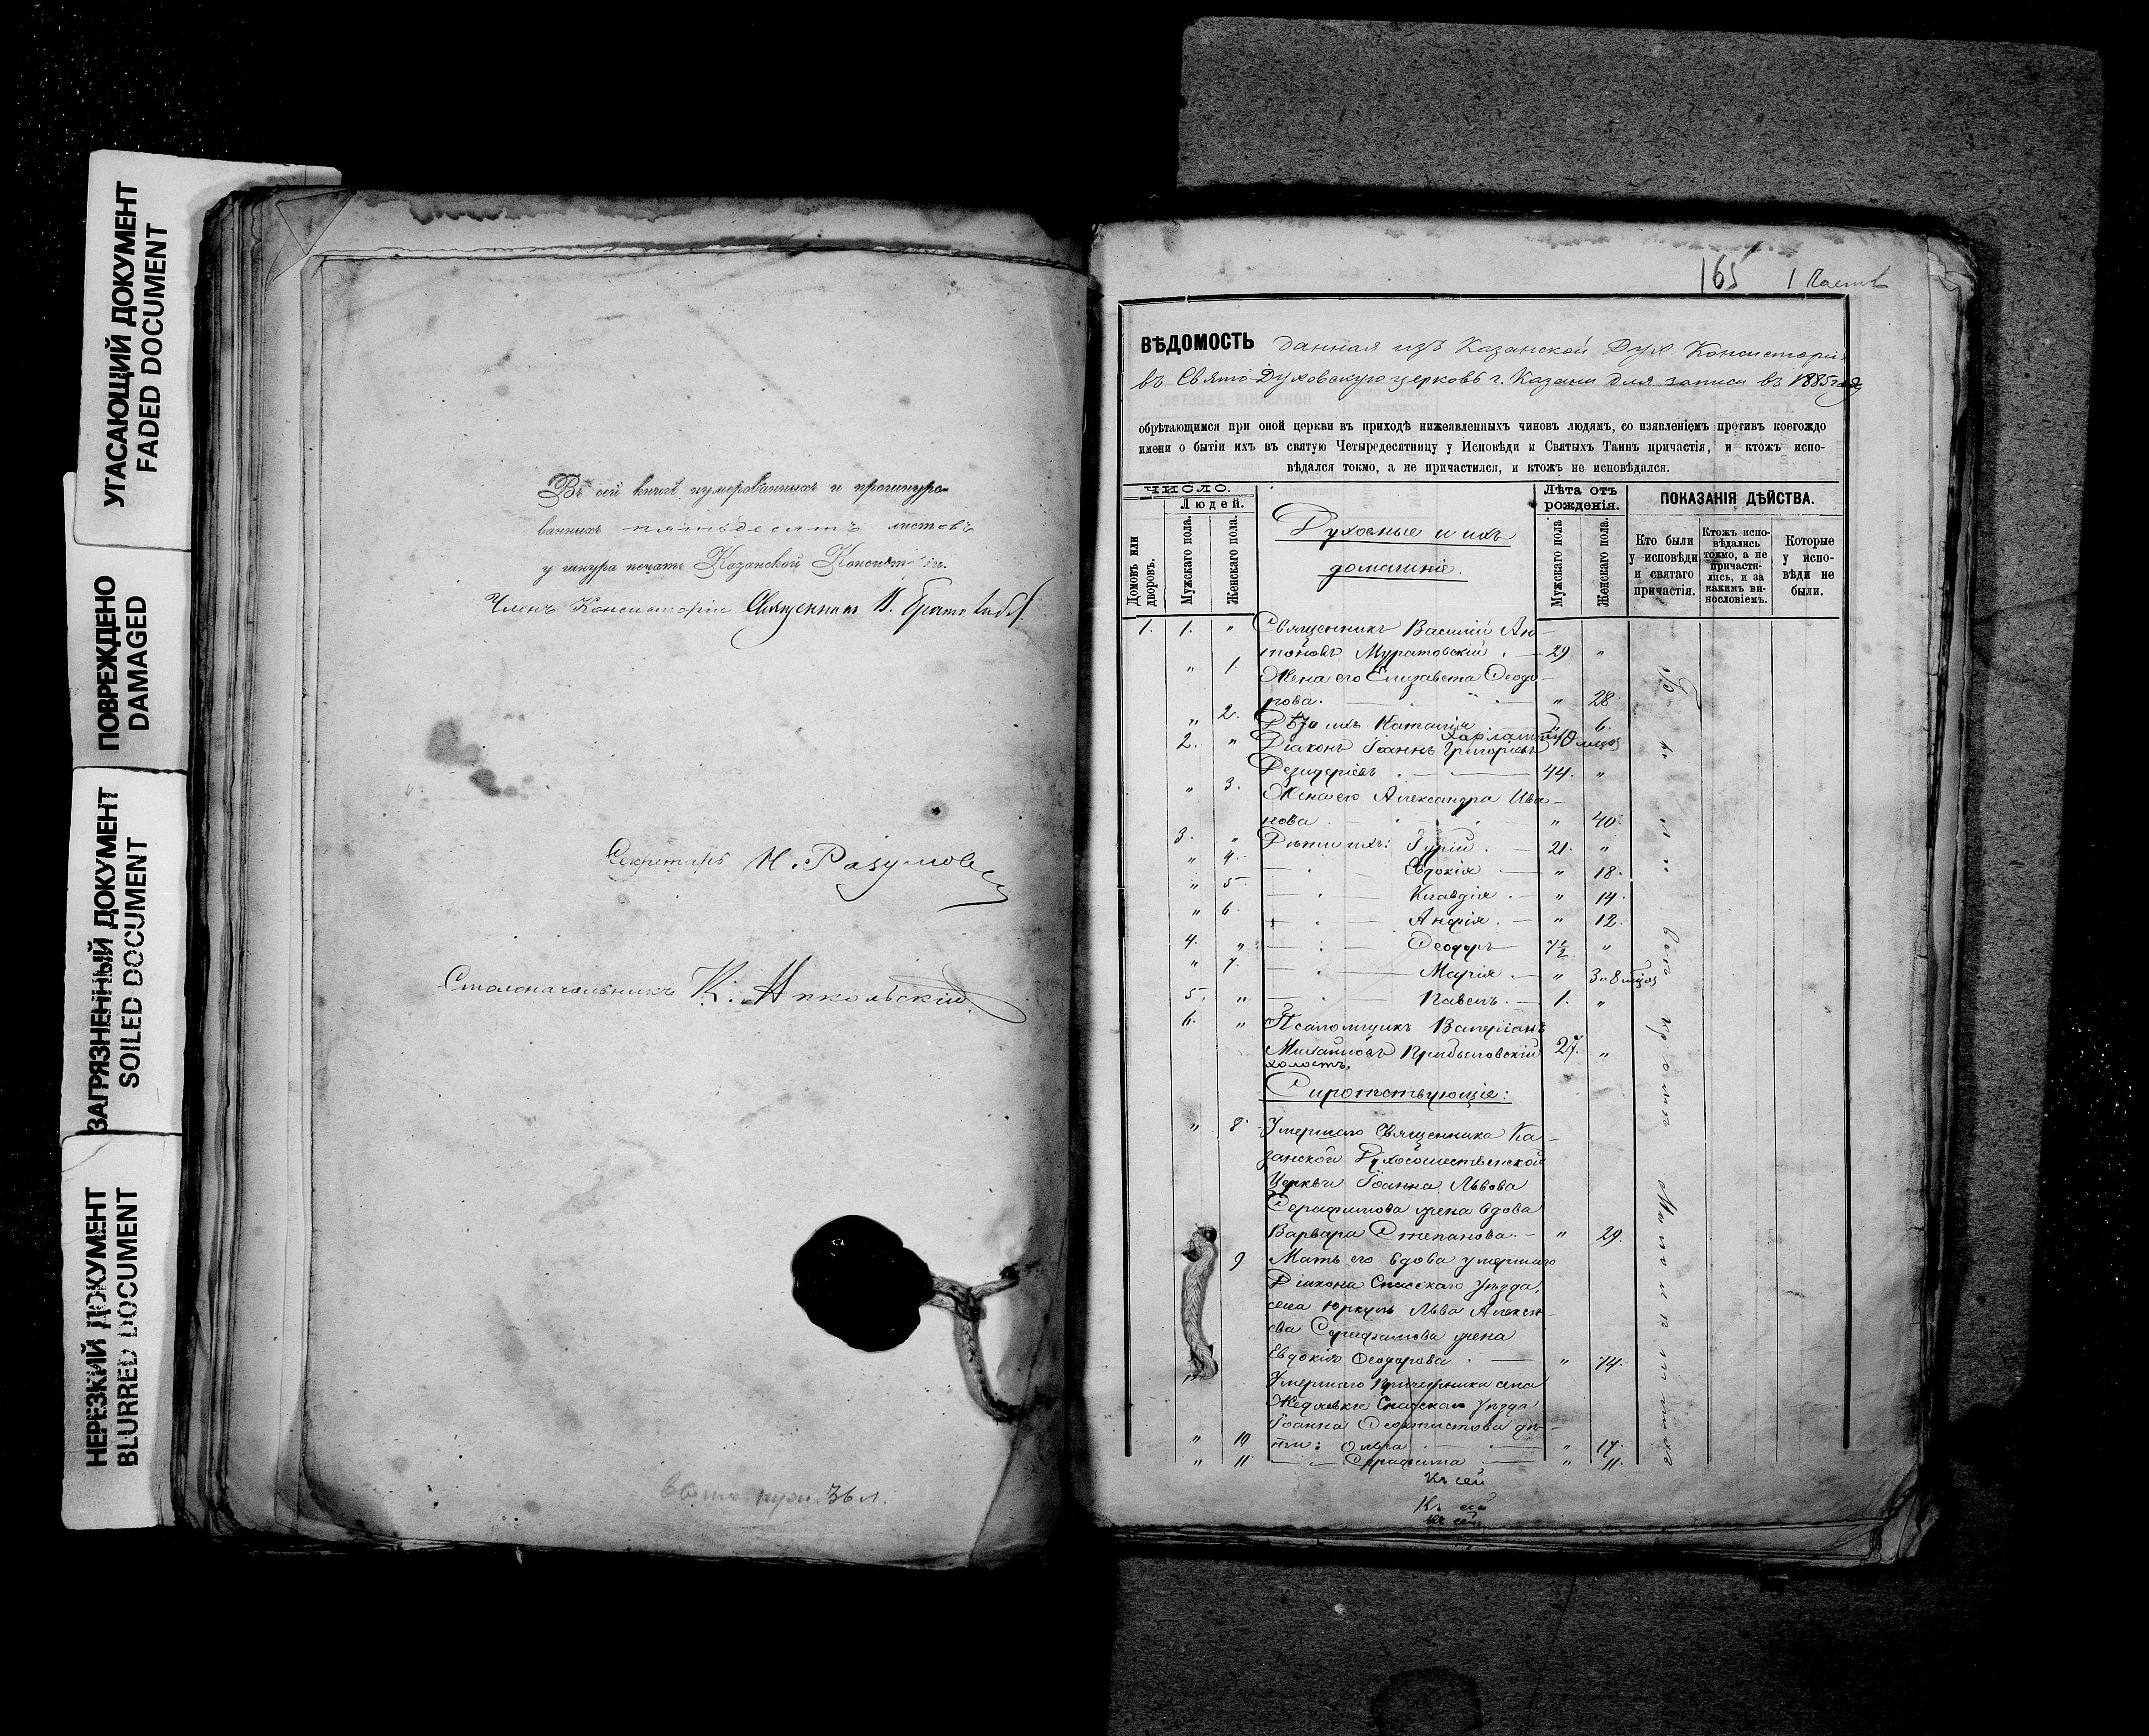 УГАСАЮЩИЙ ДОКУМЕНТ
FADED DOCUMENT
ПОВРЕЖДЕНО
DAMAGED
ЗАГРЯЗНЕННЫЙ ДОКУМЕНТ
SOILED DOCUMENT
НЕРЕЗКИЙ ДОКУМЕНТ
BLURRED DOCUMENT
Въ сей книгѣ нумерованныхъ и прошнуро-
ванныхъ пятьдесятъ листовъ
у шнура печать Казанской Консисторіи.
Членъ Консисторіи Священникъ
Секретарь Н. Разумов
Столоначальникъ К. Никольскій
36 л.
165 1
ВѢДОМОСТЬ данная изъ Казанской Дух Консисторіи
въ Свято-Духовскую церковь г. Казани для записи въ 1885 году
обрѣтающимся при оной церкви въ приходѣ нижеявленныхъ чиновъ людямъ, со изявленіемъ противъ коегождо
имени о бытіи ихъ въ святую Четыредесятницу у Исповѣди и Святыхъ Таинъ причастія, и ктожъ испо-
вѣдался токмо, а не причастился, и ктожъ не исповѣдался.
ЧИСЛО.
Людей.
Домовъ или дворовъ.
Мужскаго пола.
Женскаго пола.
Духовные и ихъ
домашніе.
Лѣта отъ рожденія.
Мужскаго пола
Женскаго пола.
ПОКАЗАНІЯ ДѢЙСТВА.
Кто были у исповѣди и святаго причастія.
Ктожъ испо-вѣдались токмо, а не причасти-лись, и за какимъ ви-нословіемъ.
Которые у испо-вѣди не были.
1. 1. " Священникъ Василій Ан-
тоновъ Муратовскій . — 29 "
" 1. Жена его Елизавета Ѳеодо-
рова. " 28.
" 2. Дѣти ихъ Наталія " 6.
Харлампій
2. " Діаконъ Іоаннъ Григорьевъ
Дезидеріевъ 44. "
" 3. Жена его Александра Ива-
нова " 40.
3. " Дѣти ихъ: Гурій 21. "
" 4. Евдокія " 18.
" 5. Клавдія " 14.
" 6. Анфія " 12.
4. " Ѳеодоръ 7½ "
" 7. Марія " 3 и 8 мѣс
5. " Павелъ 1. "
6. " Псаломщикъ Валеріанъ
Михайловъ Прибыловскій 27. "
холостъ,
Сиротствующіе:
" 8. Умершаго Священника Ка-
занской Духосошественской
Церкви Іоанна Львова
Серафимова жена вдова
Варвара Степанова. — " 29.
9 Мать его вдова умершаго
Діакона Спасскаго уѣзда,
села Юркуль Льва Алексѣ-
ева Серафимова жена
Евдокія Ѳеодорова " 74.
Умершаго Причетника села
Жедяевки Спасскаго уѣзда
Іоанна Ѳеоктистова дѣ-
" 10 ти: Ольга " 17.
" 11 Серафима " 11.
Къ сей
Къ сей
Къ сей